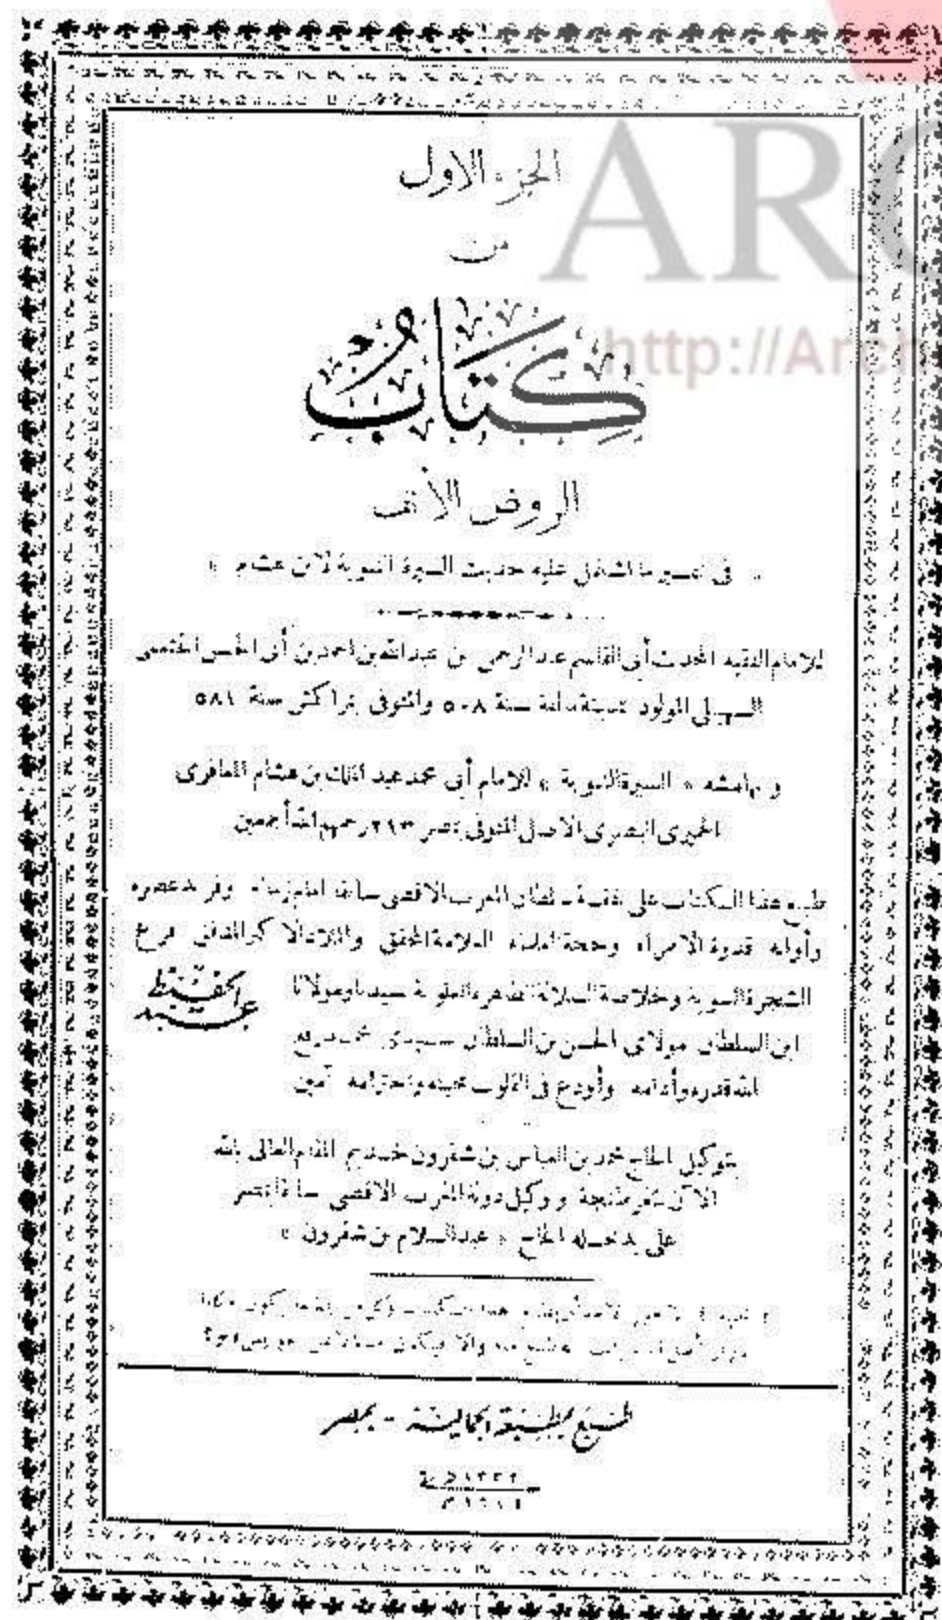 الجزء الاول
من
كتاب
الروض الأنف
« فى تفسير ما اشتمل عليه حديث السيرة النبوية لابن هشام »
للامام الفقيه المحدث أبى القاسم عبد الرحمن بن عبد الله بن احمد بن أبى الحسن الخثعمى
السهيلى المولود بمدينة مالقة سنة ٥٠٨ والمتوفى بمراكش سنة ٥٨١
وبهامشه « السيرة النبوية » للامام أبى محمد عبد الملك بن هشام المعافرى
الحميرى البصرى الاصل المتوفى بمصر ٢١٣ رحمهم الله أجمعين
طبع هذا الكتاب على نفقة سلطان المغرب الاقصى سابقا امام زمانه وفريد عصره
وأوانه قدوة الامراء وحجة العلماء العلامة المحقق والملاذ الاكبر المدقق فرع
الشجرة النبوية وخلاصة السلالة الطاهرة العلوية سيدنا ومولانا
عبد الحفيظ
ابن السلطان مولاى الحسن بن السلطان سيدى محمد رفع
الله قدره وأدامه وأودع فى القلوب محبته واحترامه آمين
بتوكيل الحاج محمد بن العباس بن شقرون خديم المقام العالى بالله
الآن بثغر طنجة ووكيل دولة المغرب الاقصى سابقا بمصر
على يد نجله الحاج « عبد السلام بن شقرون »
طبع بمطبعة الجمالية - بمصر
ARC
http://Arch